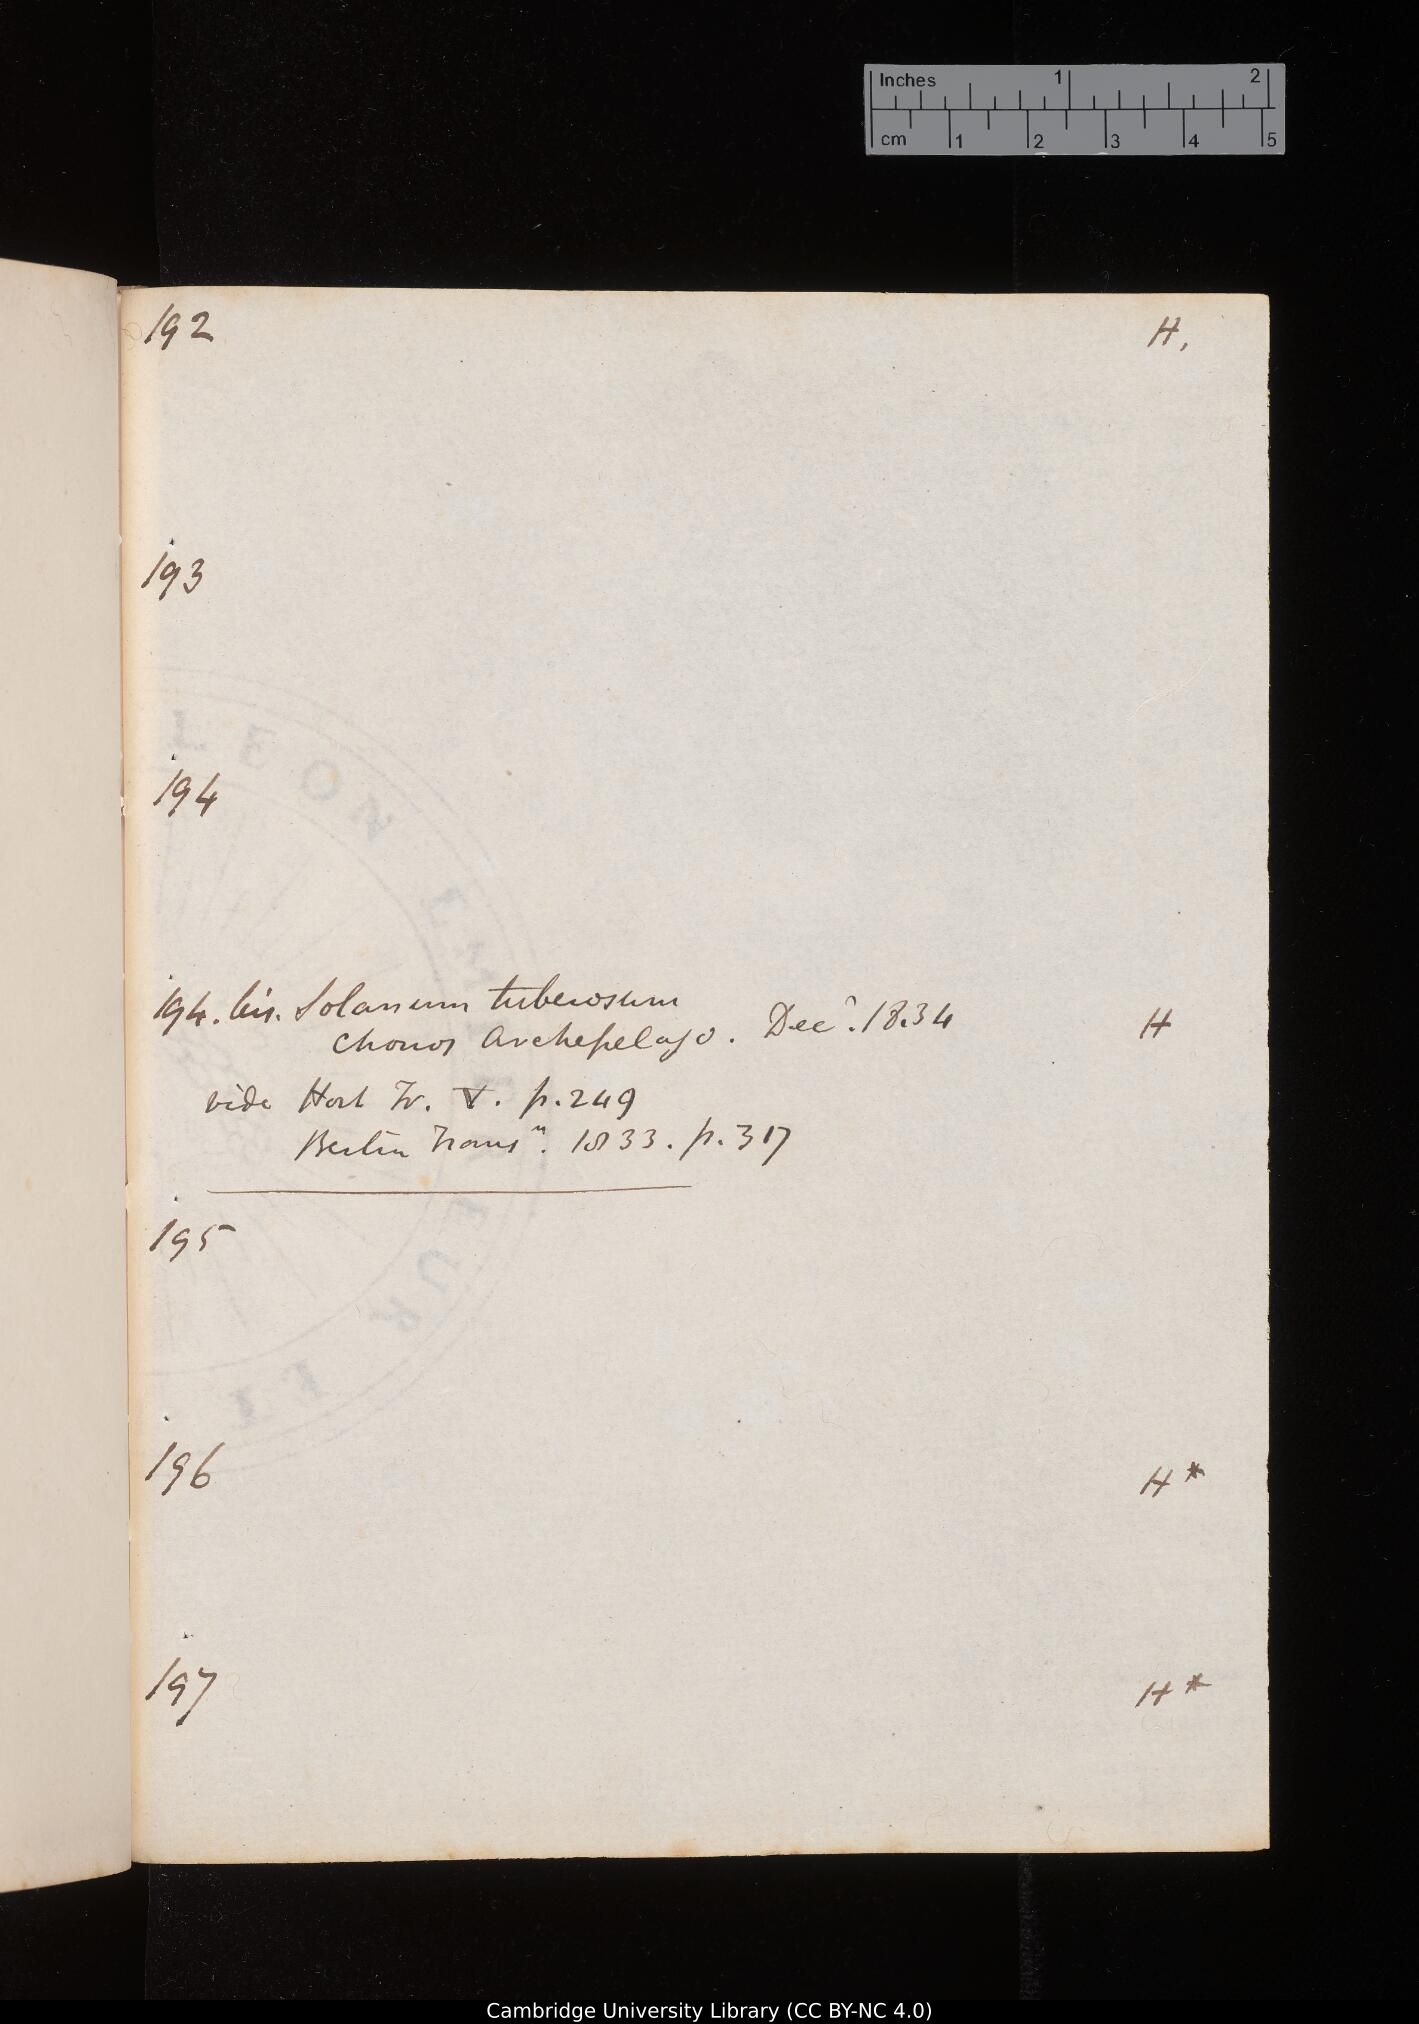 Inches 1 2
cm 1 2 3 4 5
192 H.
193
194
194. bis. Solanum tuberosum
Chonos Archepelago. Decr. 1834 H
vide Hort Tr. V. p. 249
Berlin Transn. 1833. p. 317
195
196 H*
197 H*
Cambridge University Library (CC BY-NC 4.0)